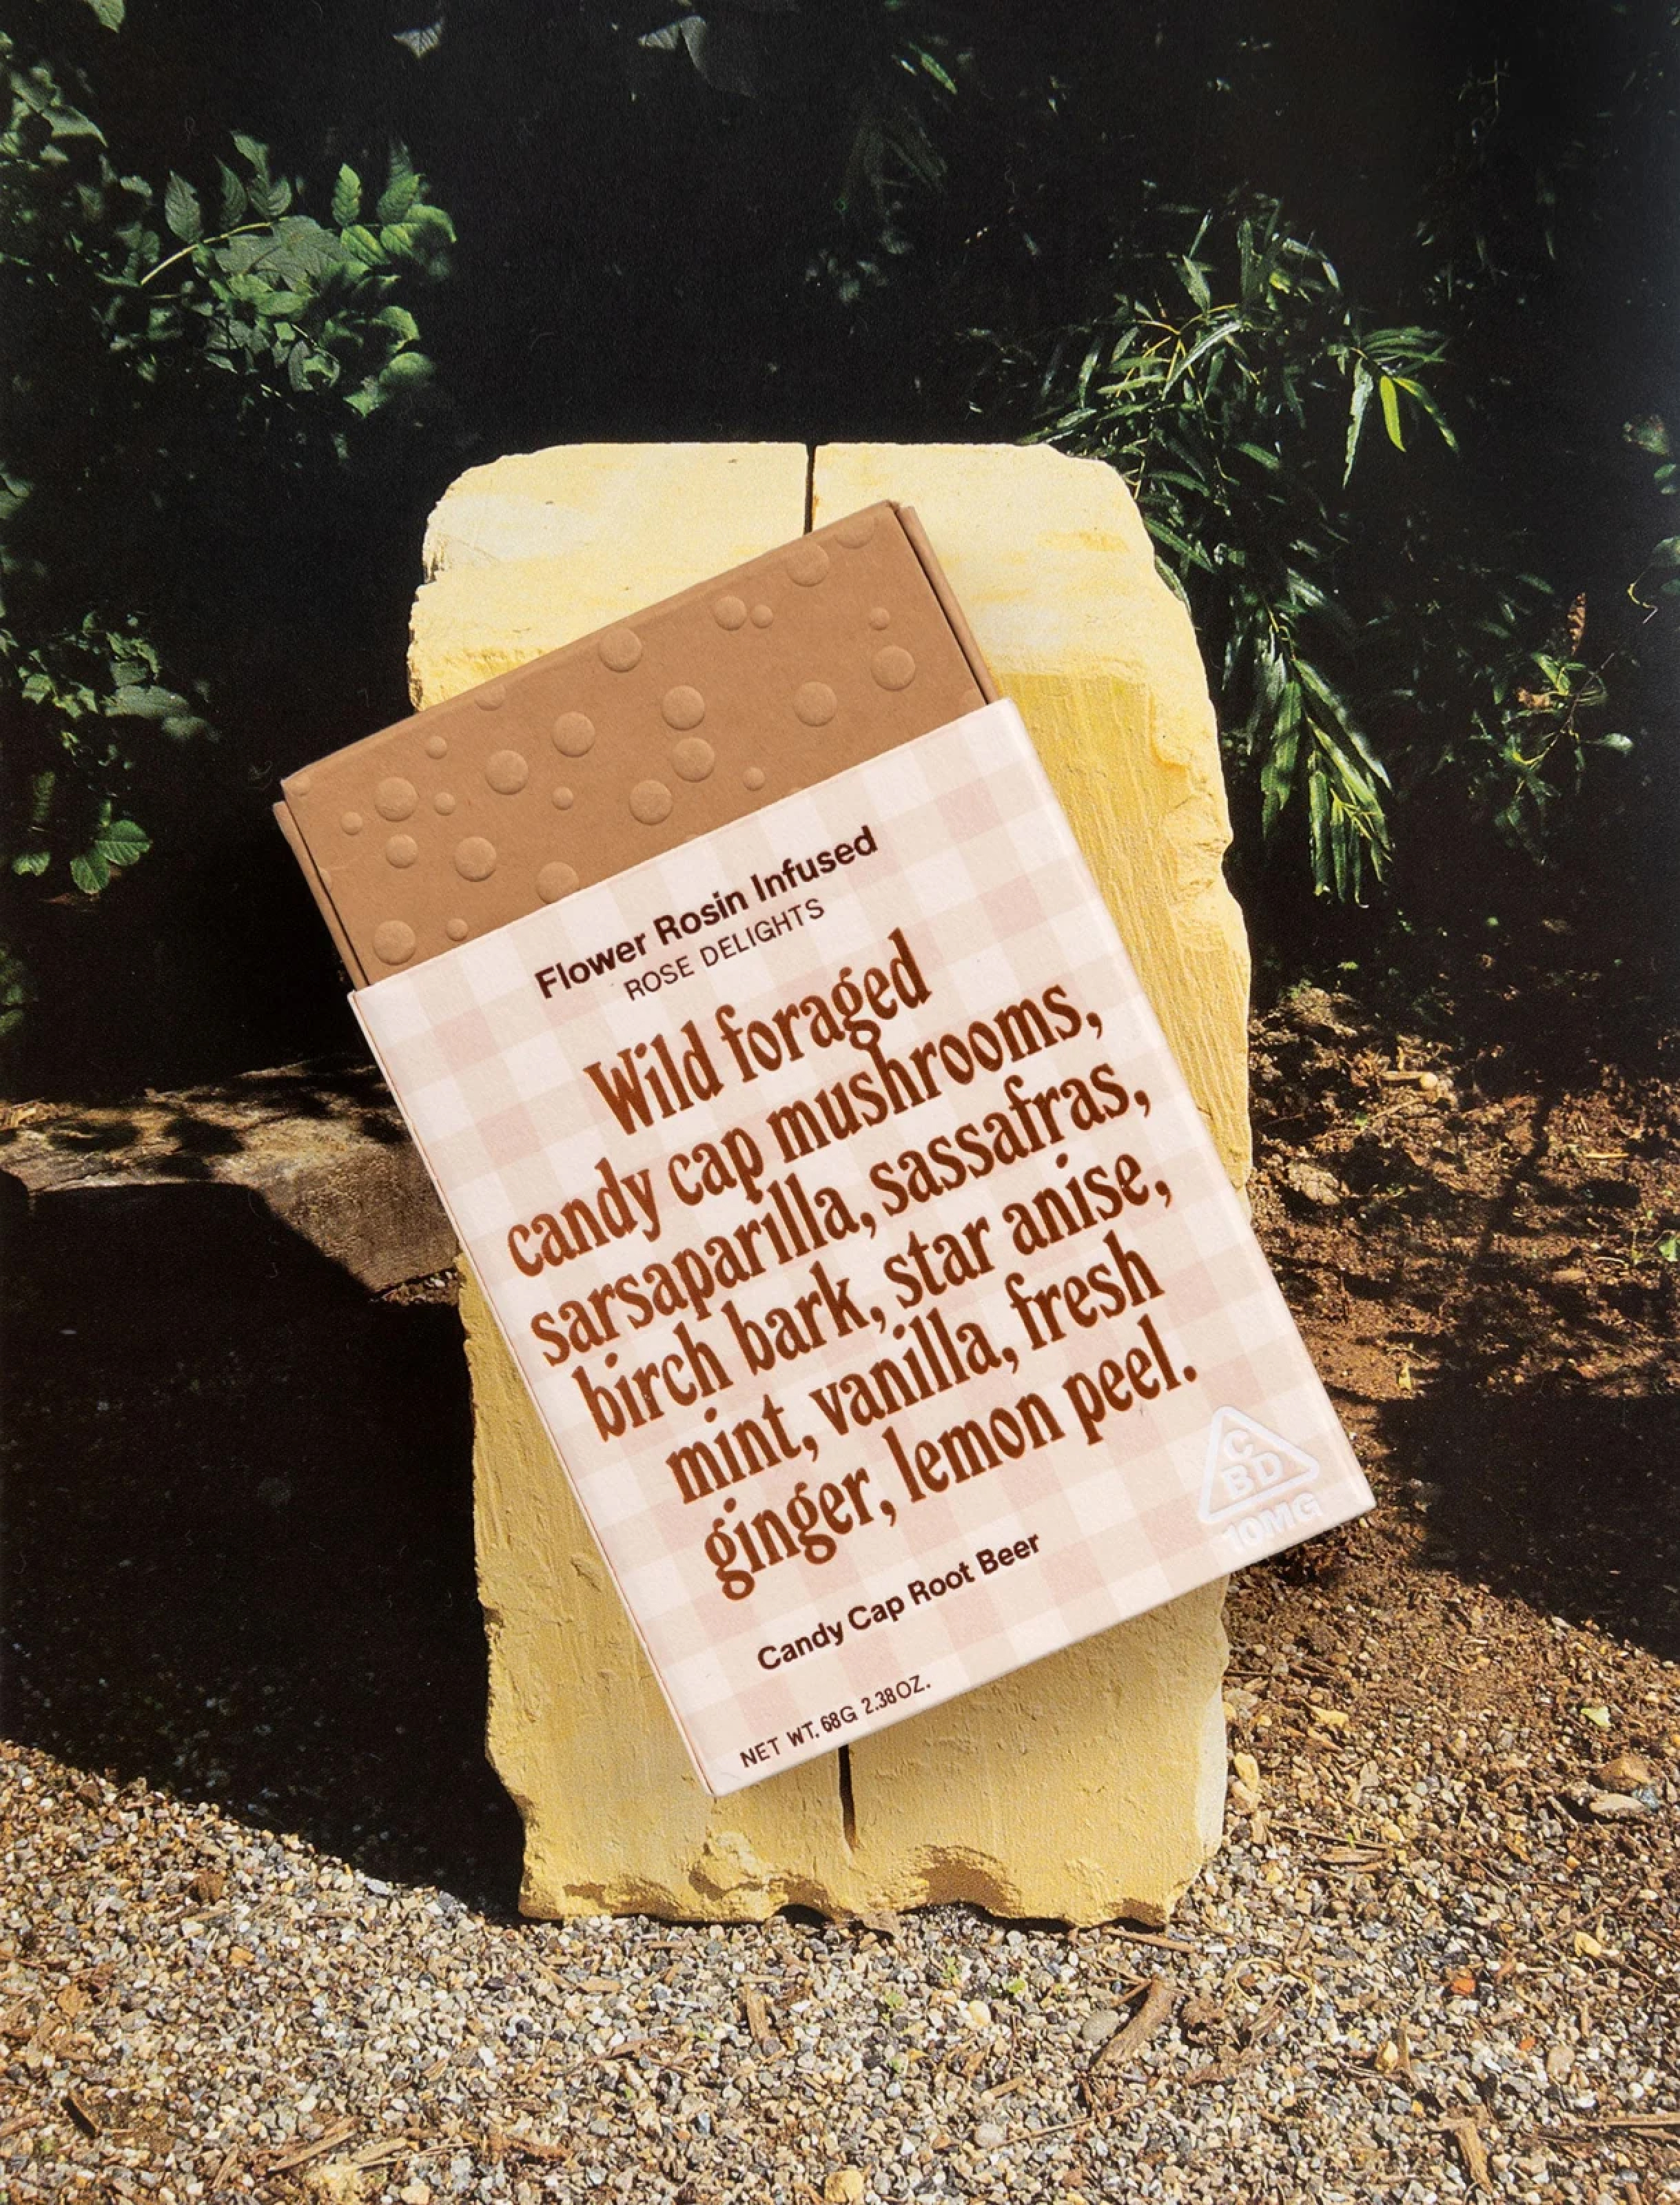 Flower Rosin Infused
ROSE DELIGHTS
Wild foraged
candy cap mushrooms,
sarsaparilla, sassafras,
birch bark, star anise,
mint, vanilla, fresh
ginger, lemon peel.
C
BD
10MG
Candy Cap Root Beer
NET WT. 68G 2.38OZ.